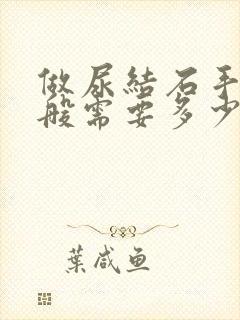 做尿結石手
般需要多少
葉咸魚